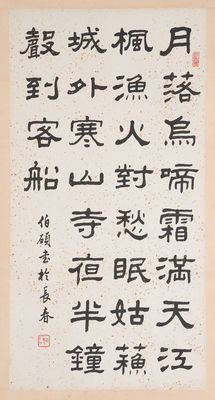 月落烏啼霜滿天江
楓漁火對愁眠姑蘇
城外寒山寺夜半鐘
聲到客船
伯碩書於長春